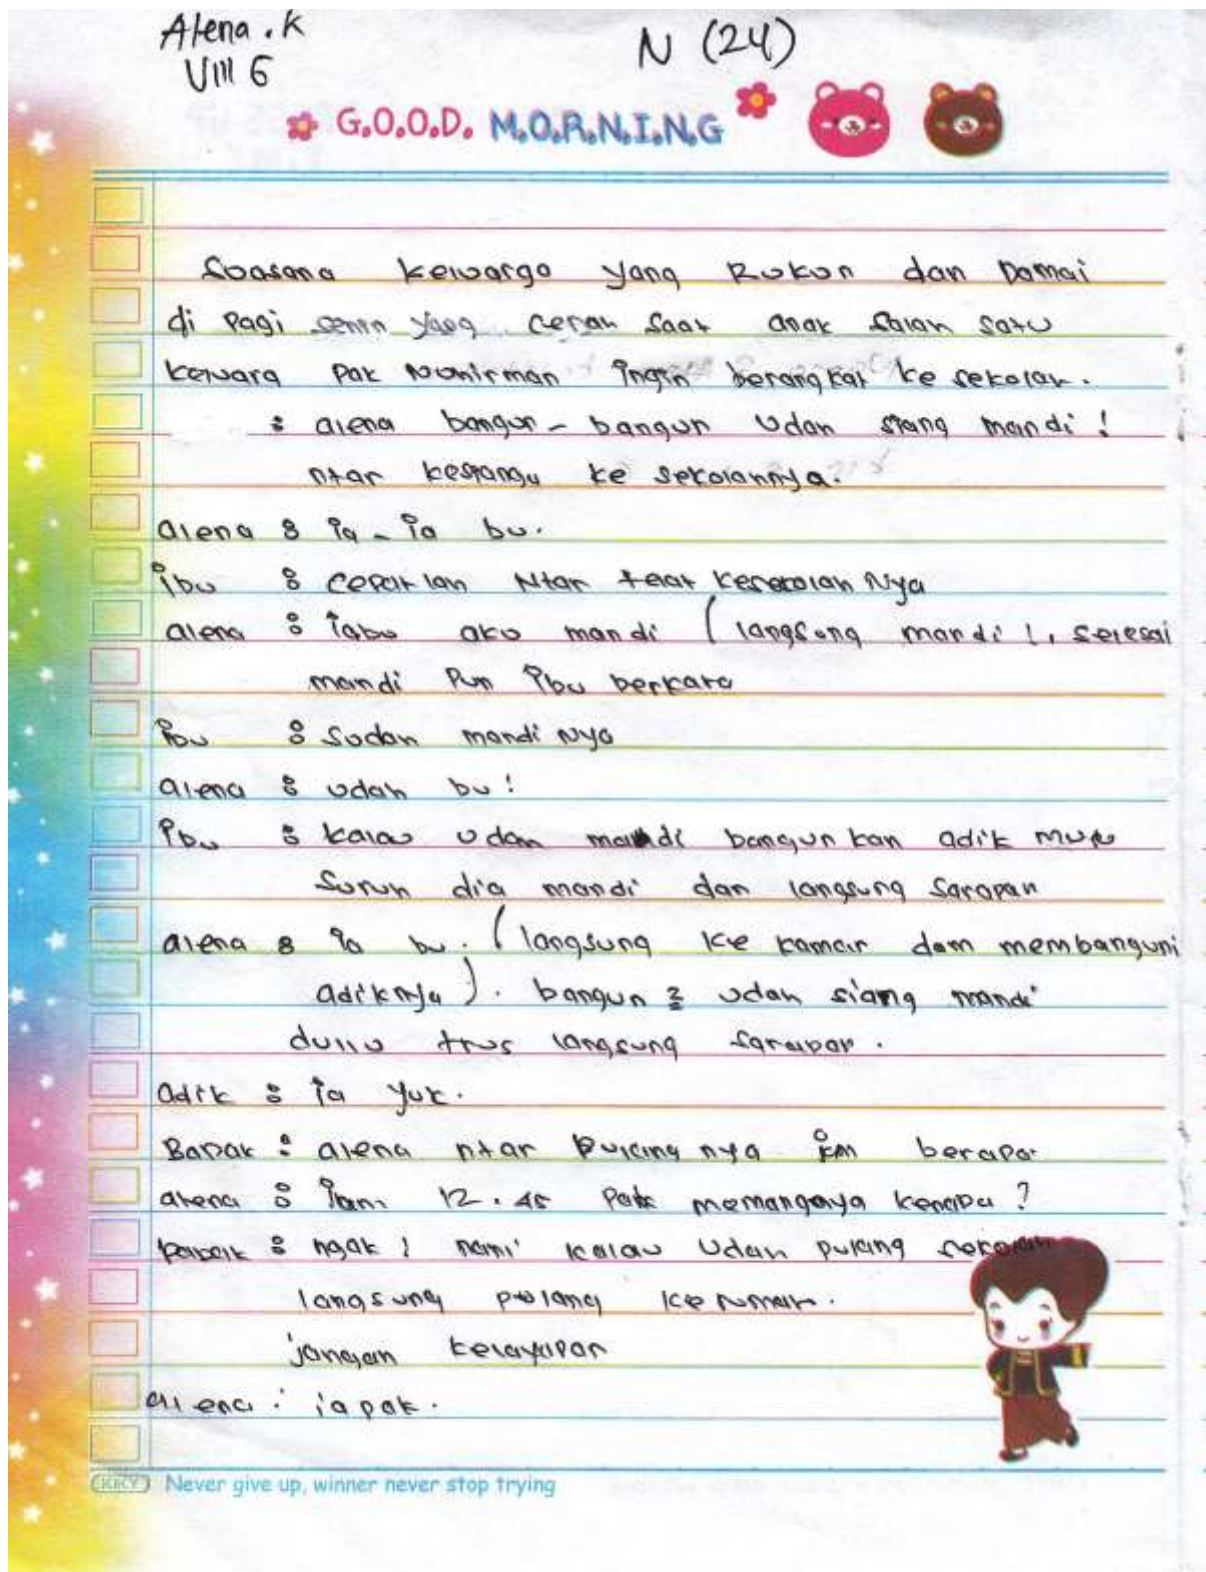 Alena . K
VIII 6
N (24)
G.O.O.D. M.O.R.N.I.N.G
Suasana keluarga yang Rukun dan Damai
di Pagi senin yang cerah saat anak salah satu
keluara Pak ingin berangkat ke sekolah.
: alena bangun - bangun udah siang mandi !
ntar kesiangu ke sekolahnya.
alena : ia - ia bu.
ibu : cepat lah Ntar telat kesekolah Nya
alena : iabu aku mandi ( langsung mandi !, selesai
mandi Pun ibu berkata
ibu : Sudah mandi Nya
alena : udah bu !
ibu : kalau udah mandi bangun kan adik mu
Suruh dia mandi dan langsung Sarapan
alena : ia bu. ( langsung ke kamar dam membanguni
adiknya ). bangun 2 udah siang mandi
dullu trus langsung sarapan.
adik : ia yuk.
Bapak : alena ntar Pulang nya jam berapa
alena : Jam 12.45 Pak memangnya kenapa ?
bapak : ngak ! nanti kalau Udah pulang sekolah
langsung pulang ke rumah.
jangan kelayapan
alena : ia pak.
KKY Never give up, winner never stop trying